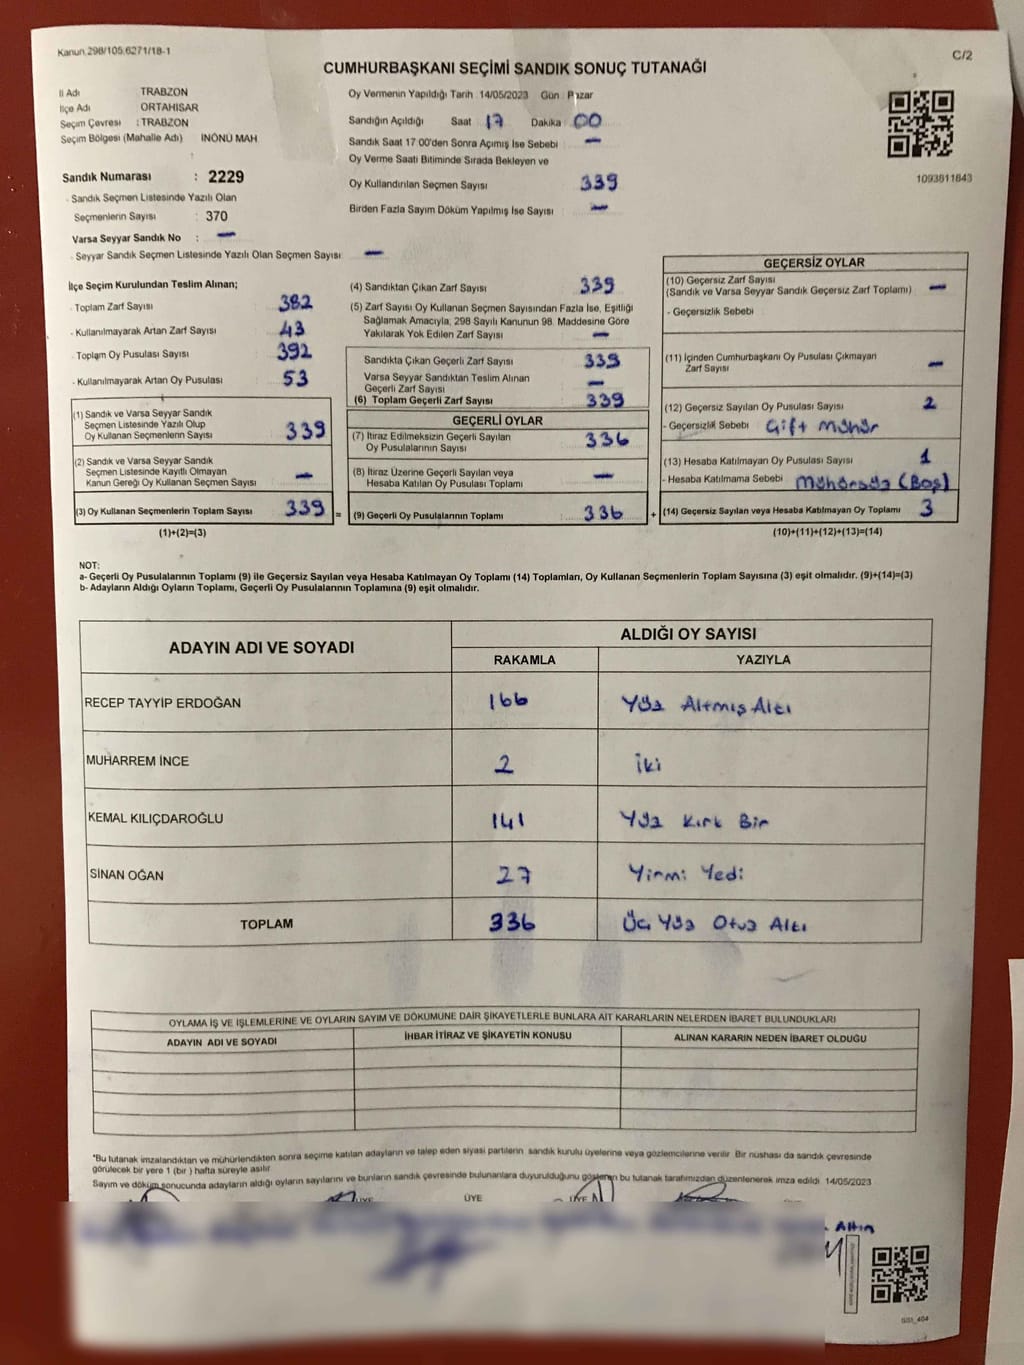 Kanun 298/105,6271/18-1
C/2
CUMHURBAŞKANI SEÇİMİ SANDIK SONUÇ TUTANAĞI
İl Adı TRABZON
İlçe Adı ORTAHİSAR
Seçim Çevresi : TRABZON
Seçim Bölgesi (Mahalle Adı) İNÖNÜ MAH
Sandık Numarası : 2229
- Sandık Seçmen Listesinde Yazılı Olan
Seçmenlerin Sayısı : 370
Varsa Seyyar Sandık No : —
- Seyyar Sandık Seçmen Listesinde Yazılı Olan Seçmen Sayısı —
Oy Vermenin Yapıldığı Tarih 14/05/2023 Gün : Pazar
Sandığın Açıldığı Saat 17 Dakika 00
Sandık Saat 17:00'den Sonra Açılmış İse Sebebi —
Oy Verme Saati Bitiminde Sırada Bekleyen ve
Oy Kullandırılan Seçmen Sayısı 339
Birden Fazla Sayım Döküm Yapılmış İse Sayısı —
1093811843
İlçe Seçim Kurulundan Teslim Alınan;
- Toplam Zarf Sayısı 382
- Kullanılmayarak Artan Zarf Sayısı 43
- Toplam Oy Pusulası Sayısı 392
- Kullanılmayarak Artan Oy Pusulası 53
(1) Sandık ve Varsa Seyyar Sandık
Seçmen Listesinde Yazılı Olup
Oy Kullanan Seçmenlerin Sayısı 339
(2) Sandık ve Varsa Seyyar Sandık
Seçmen Listesinde Kayıtlı Olmayan
Kanun Gereği Oy Kullanan Seçmen Sayısı —
(3) Oy Kullanan Seçmenlerin Toplam Sayısı 339 =
(1)+(2)=(3)
(4) Sandıktan Çıkan Zarf Sayısı 339
(5) Zarf Sayısı Oy Kullanan Seçmen Sayısından Fazla İse, Eşitliği
Sağlamak Amacıyla, 298 Sayılı Kanunun 98. Maddesine Göre
Yakılarak Yok Edilen Zarf Sayısı —
Sandıkta Çıkan Geçerli Zarf Sayısı 339
Varsa Seyyar Sandıktan Teslim Alınan
Geçerli Zarf Sayısı —
(6) Toplam Geçerli Zarf Sayısı 339
GEÇERLİ OYLAR
(7) İtiraz Edilmeksizin Geçerli Sayılan
Oy Pusulalarının Sayısı 336
(8) İtiraz Üzerine Geçerli Sayılan veya
Hesaba Katılan Oy Pusulası Toplamı —
(9) Geçerli Oy Pusulalarının Toplamı 336 +
GEÇERSİZ OYLAR
(10) Geçersiz Zarf Sayısı
(Sandık ve Varsa Seyyar Sandık Geçersiz Zarf Toplamı) —
- Geçersizlik Sebebi
(11) İçinden Cumhurbaşkanı Oy Pusulası Çıkmayan
Zarf Sayısı —
(12) Geçersiz Sayılan Oy Pusulası Sayısı 2
- Geçersizlik Sebebi Çift Mühür
(13) Hesaba Katılmayan Oy Pusulası Sayısı 1
- Hesaba Katılmama Sebebi Mühürsüz (Boş)
(14) Geçersiz Sayılan veya Hesaba Katılmayan Oy Toplamı 3
(10)+(11)+(12)+(13)=(14)
NOT:
a- Geçerli Oy Pusulalarının Toplamı (9) ile Geçersiz Sayılan veya Hesaba Katılmayan Oy Toplamı (14) Toplamları, Oy Kullanan Seçmenlerin Toplam Sayısına (3) eşit olmalıdır. (9)+(14)=(3)
b- Adayların Aldığı Oyların Toplamı, Geçerli Oy Pusulalarının Toplamına (9) eşit olmalıdır.
ADAYIN ADI VE SOYADI ALDIĞI OY SAYISI
RAKAMLA YAZIYLA
RECEP TAYYİP ERDOĞAN 166 Yüz Altmış Altı
MUHARREM İNCE 2 İki
KEMAL KILIÇDAROĞLU 141 Yüz Kırk Bir
SİNAN OĞAN 27 Yirmi Yedi
TOPLAM 336 Üç Yüz Otuz Altı
OYLAMA İŞ VE İŞLEMLERİNE VE OYLARIN SAYIM VE DÖKÜMÜNE DAİR ŞİKAYETLERLE BUNLARA AİT KARARLARIN NELERDEN İBARET BULUNDUKLARI
ADAYIN ADI VE SOYADI İHBAR İTİRAZ VE ŞİKAYETİN KONUSU ALINAN KARARIN NEDEN İBARET OLDUĞU
*Bu tutanak imzalandıktan ve mühürlendikten sonra seçime katılan adayların ve talep eden siyasi partilerin sandık kurulu üyelerine veya gözlemcilerine verilir. Bir nüshası da sandık çevresinde
görülecek bir yere 1 (bir ) hafta süreyle asılır.
Sayım ve döküm sonucunda adayların aldığı oyların sayılarını ve bunların sandık çevresinde bulunanlara duyurulduğunu gösteren bu tutanak tarafımızdan düzenlenerek imza edildi. 14/05/2023
ÜYE ÜYE ÜYE
Altın